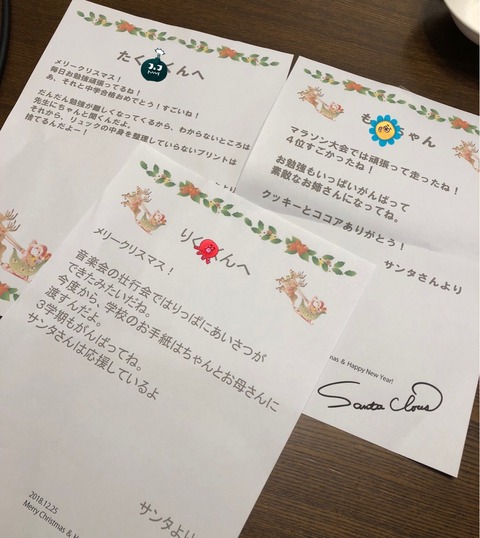 たく くんへ
メリークリスマス！
毎日お勉強頑張ってるね！
あ、それと中学合格おめでとう！すごいね！
だんだん勉強が難しくなってくるから、わからないところは
先生にちゃんと聞くんだよ。
それから、リュックの中身を整理していらないプリントは
捨てるんだよー！
も ちゃん
マラソン大会では頑張って走ったね！
4位すごかったね！
お勉強もいっぱいがんばって
素敵なお姉さんになってね。
クッキーとココアありがとう！
サンタさんより
mas & Happy New Year!
Santa Claus
りく くんへ
メリークリスマス！
音楽会の壮行会ではりっぱにあいさつが
できたみたいだね。
今度から、学校のお手紙はちゃんとお母さんに
渡すんだよ。
3学期もがんばってね。
サンタさんは応援しているよ
サンタより
2018.12.25
Merry Christmas & Ha